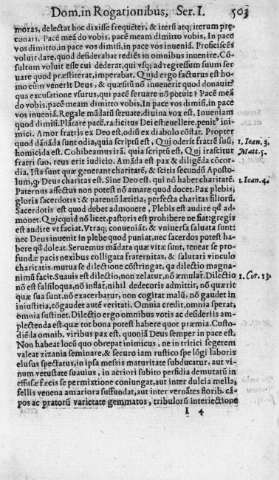 Dom.in Rogationibus, Ser. I. 503
moras, delectat hoc dixisse frequẽter, & iterũ atq; iterum præ-
conari. Pacẽ meã do vobis. pacẽ meam dimitto vobis. In pace
vos dimitto, in pace vos dimisi, in pace vos inueniã. Proficiscẽs
voluit dare, quod desiderabat rediẽs in omnibus inuenire. Cõ-
sultum voluit esse cui dederat. qui vtiq; ad regressum suum ser-
uare quod præstiterat, imperabat. Quid ergo facturus est ho-
mo cùm venerit Deus, & quæsiuus inuenerit quod donauit?
qua excusatione vsurus, qui pacẽ seruare nõ potuit? Pacẽ meã do
vobis. pacẽ meam dimitto vobis. In pace vos dimitto, in pace
vos inueniã. Regale mãdatũ seruare. diuina vox est. Inueniam
quod dimisi. Plãtare pacẽ, radicitùs Dei est. euellere penit' ini-
mici. Amor fratris ex Deo est, odiũ ex diabolo cõstat. Propter
quod dãnãda sunt odia, quia scriptũ est. Qui oderit fratrẽ suũ, 1. Ioan. 3.
homicida est. Cohibenda irã, quia scriptũ est. Qui irascitur Matt. 5.
fratri suo, reus erit iudicio. Amãda est pax & diligẽda cõcor-
dia. Ista sunt quæ generant charitatẽ, & scitis secundũ Aposto-
lum, q; Deus charitas est. Sine Deo est. qui nõ habet charitatẽ. 1. Ioan. 4.
Paternus affectus non potest nõ amare quod docet. Pax plebis,
gloria sacerdotis: & parentũ lætitia, perfecta charitas filiorũ.
Sacerdotis est quod debet admonere, Plebis est audire quod ad-
monet. Quicquid nõ licet. pastoris est prohibere ne fiat: gregis
est audire vt faciat. Vtraq; conueniãt. & vniuersa saluata sunt:
nec Deus inuenit in plebe quod puniat. nec Sacerdos potest ha-
bere qd doleat. Seruemus mãdata quæ vitæ sunt, teneatur pro-
fundæ pacis nexibus colligata fraternitas, & salutari vinculo
charitatis mutuæ dilectione cõstringatur, qa dilectio magna
nimis facit. Suauis est dilectio, non zelatur. nõ æmulat. Dilectio 1. Cor. 13.
nõ est falsiloqua, nõ inflat. nihil dedecoris admittit, nõ quærit
quæ sua sunt. nõ exacerbatur, non cogitat malũ. nõ gaudet in
iniustitia, cõgaudet autẽ veritati. Omnia credit. omnia sperat,
omnia sustinet. Dilectio ergo omnibus votis ac desideriis am-
plectenda est: quæ tot bona potest habere quot præmia. Custo-
diẽda omnib. viribus pax est. quoniã Deus semper in pace est.
Non habeat locũ quo obrepat inimicus, ne in tritici segetem
valeat zizania seminare. & securo iam rustico spe lõgi laboris
elusa spectatus, in ipsa messis maturitate subducatur. aut vi-
num vetustate suauius, in acriori subito perfidia demutatũ in
effusæ fæcis se permixtione coniungat. aut inter dulcia mella,
fellis venena amariora suffundat. aut inter vernãtes floribus cã-
pos ac pratorũ varietate gemmatos, tribulorũ interiectione
I 4